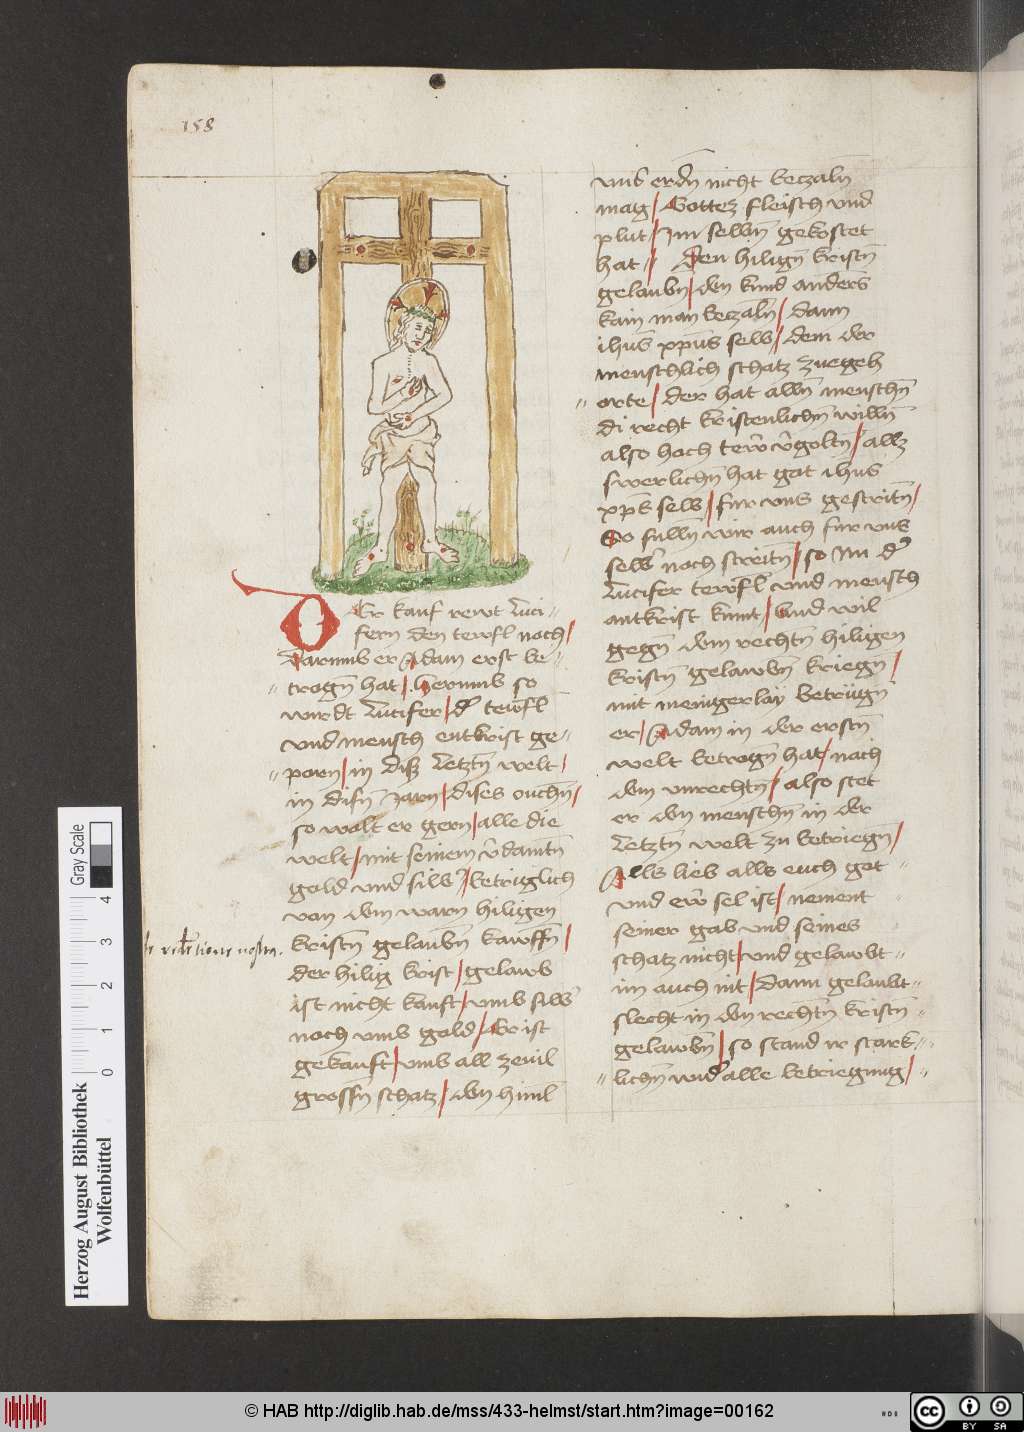 158
Der kauf rewt Luci-
fern den tewfl noch /
Darumb er Adam erst be-
trogn̄ hat / Herumb so
wirdt Lucifer / d' tewfl
vnd mensch entkrist ge-
porn / in diser letztn̄ welt /
in disn̄ Jarn / dises
so wolt er gern / alle die
welt / mit seinem v̄damtn̄
gold vnd silb' / betruglich
von dem warn hiligen
kristn̄ gelaubn̄ kawffn̄ /
der hilig krist / gelawb
ist nicht kauft / vmb silb'
noch vmb gold / Er ist
gekauft / vmb all zeuil
grossn̄ schatz / den himl
vns erdn̄ nicht beczaln̄
mag / Gottez fleisch vnd
plut / Im selbn̄ gekostet
hat / Den hilign̄ kristn̄
gelaubn̄ / den kund anders
kain man beczaln̄ / dann
ihūs xp̄us selb / dem der
menschlich schatz zuegeh
orte / der hat alln̄ menschn̄
di recht kristenlichn̄ willn̄
also hoch tewr v̄goltn̄ / allz
swerlichn̄ hat got ihūs
xp̄s selb / fur vns gestritn̄ /
So sulln̄ wir auch fur vns
selb' noch streitn̄ / so Nu d'
Lucifer tewfl vnd mensch
antkrist kumt / Vnd wil
gegn̄ dem rechtn̄ hiligen
kristn̄ gelawbn̄ kriegn̄ /
mit menigerlay betrugn̄
er / Adam in der erstn̄
welt betrogn̄ hat / nach
dem vnrechtn̄ / also stet
er den menschn̄ in der
Letztn̄ welt zu betriegn̄ /
Alls lieb alls euch got
vnd ew̄r sel ist / nement
seiner gab vnd seines
schatz nicht / vnd gelawbt
im auch nit / dann gelaubt
slecht in den rechtn̄ kristn̄
gelawbn̄ / so stand ir stark-
lichn̄ wid' alle betriegung /
Herzog August Bibliothek
Wolfenbüttel
0 1 2 3 4
Gray Scale
© HAB http://diglib.hab.de/mss/433-helmst/start.htm?image=00162
cc BY SA